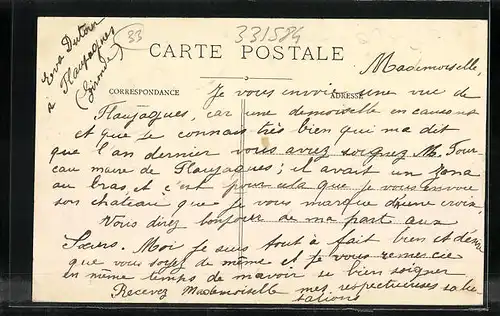 Eva Dutour
à Flaujagues
(Gironde)
33
331584
CARTE POSTALE
CORRESPONDANCE
ADRESSE
Mademoiselle,
Je vous envoie une vue de
Flaujagues, car une demoiselle en causant
et que je connais très bien qui ma dit
que l'an dernier vous avez soigner M. Four
cau maire de Flaujagues; il avait un zona
au bras, et c'est pour cela que je vous envoie
son chateau que je vous marque d'une croix,
Vous direz bonjour de ma part aux
Sœurs. Moi je suis tout à fait bien et désire
que vous soyez de même et je vous remercie
en même temps de mavoir si bien soigner
Recevez Mademoiselle mes respectueuses salu
tations